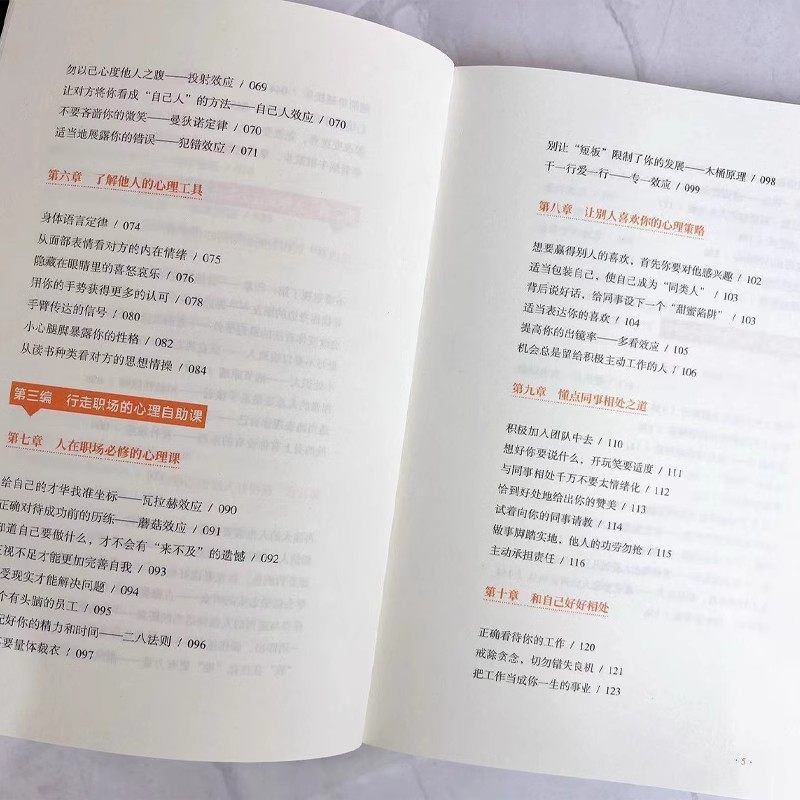 勿以己心度他人之腹——投射效应 / 069
让对方将你看成“自己人”的方法——自己人效应 / 070
不要吝啬你的微笑——曼狄诺定律 / 070
适当地展露你的错误——犯错效应 / 071
第六章 了解他人的心理工具
身体语言定律 / 074
从面部表情看对方的内在情绪 / 075
隐藏在眼睛里的喜怒哀乐 / 076
用你的手势获得更多的认可 / 078
手臂传达的信号 / 080
小心腿脚暴露你的性格 / 082
从读书种类看对方的思想情操 / 084
第三编 行走职场的心理自助课
第七章 人在职场必修的心理课
给自己的才华找准坐标——瓦拉赫效应 / 090
正确对待成功前的历练——蘑菇效应 / 091
知道自己要做什么，才不会有“来不及”的遗憾 / 092
正视不足才能更加完善自我 / 093
受现实才能解决问题 / 094
个有头脑的员工 / 095
配好你的精力和时间——二八法则 / 096
要量体裁衣 / 097
别让“短板”限制了你的发展——木桶原理 / 098
干一行爱一行——专一效应 / 099
第八章 让别人喜欢你的心理策略
想要赢得别人的喜欢，首先你要对他感兴趣 / 102
适当包装自己，使自己成为“同类人” / 103
背后说好话，给同事设下一个“甜蜜陷阱” / 103
适当表达你的喜欢 / 104
提高你的出镜率——多看效应 / 105
机会总是留给积极主动工作的人 / 106
第九章 懂点同事相处之道
积极加入团队中去 / 110
想好你要说什么，开玩笑要适度 / 111
与同事相处千万不要太情绪化 / 112
恰到好处地给出你的赞美 / 113
试着向你的同事请教 / 114
做事脚踏实地，他人的功劳勿抢 / 115
主动承担责任 / 116
第十章 和自己好好相处
正确看待你的工作 / 120
戒除贪念，切勿错失良机 / 121
把工作当成你一生的事业 / 123
· 5 ·